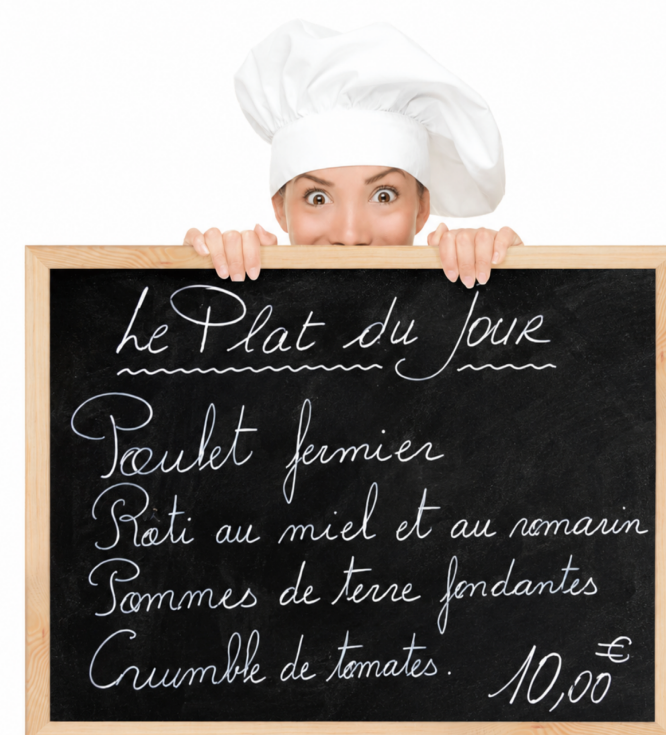 Le Plat du Jour
Poulet fermier
Roti au miel et au romarin
Pommes de terre fondantes
Crumble de tomates.
10,00€